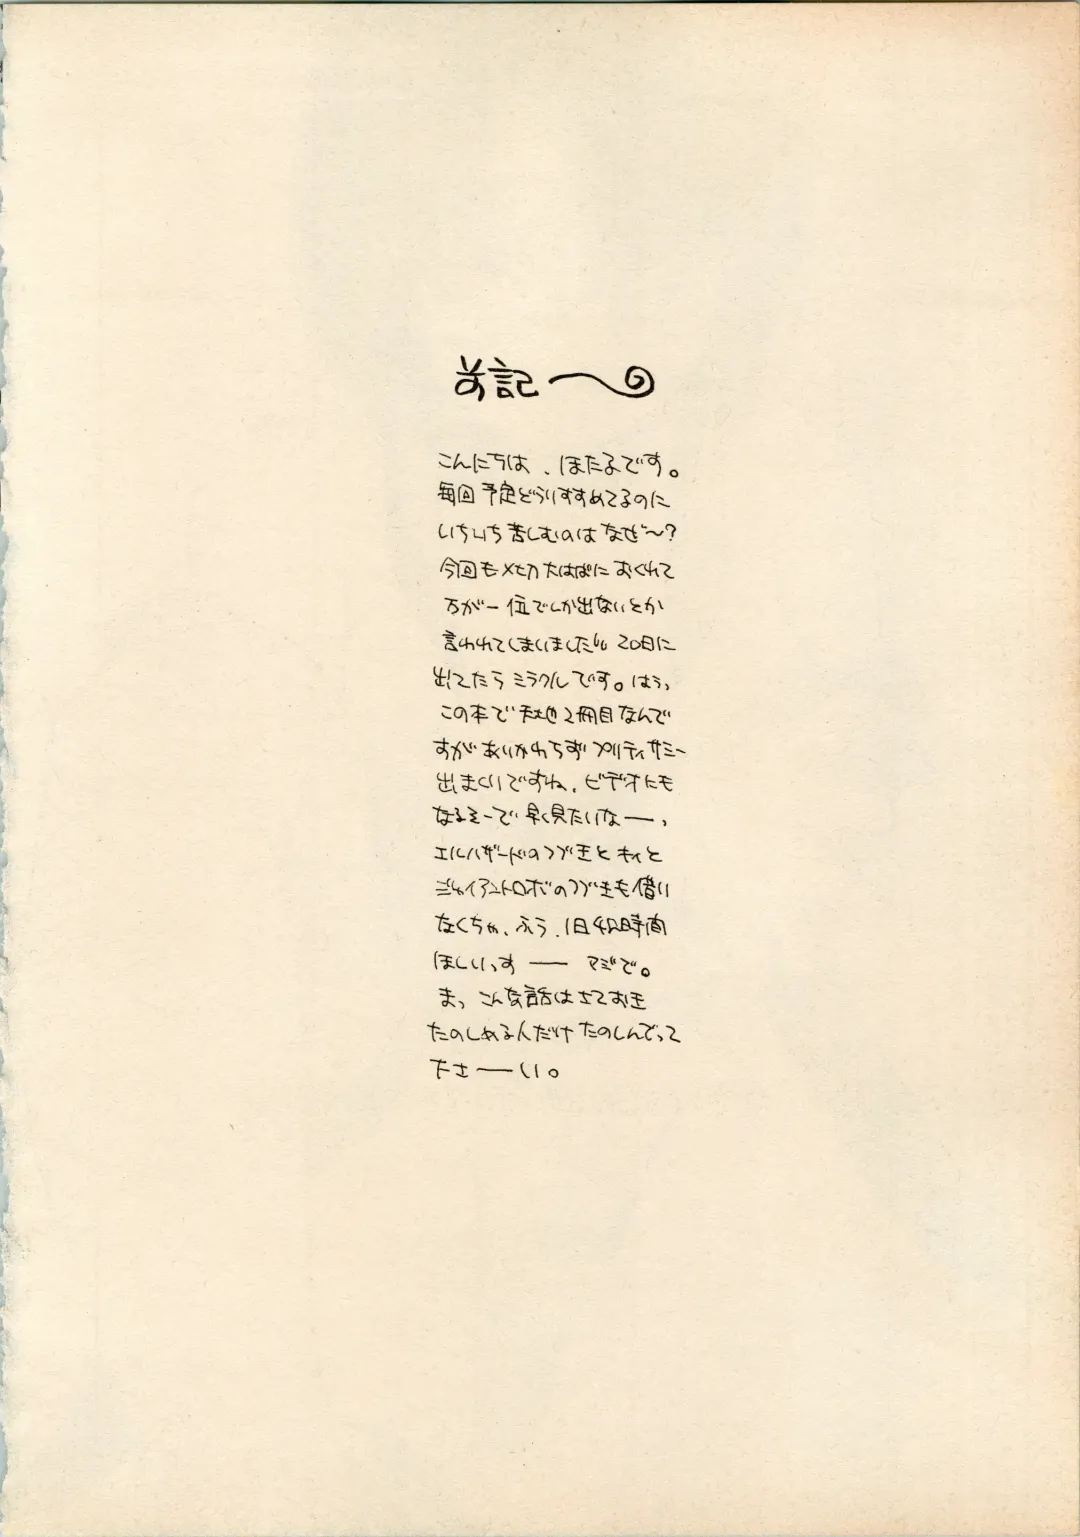 前記
こんにちは、ほたるです。
毎回予定どうりすすめてるのに
いちいち苦しむのはなぜ〜?
今回もメチャ大はばにおくれて
万が一位でしか出ないとか
言われてしまいました 20日に
出てたらミラクルです。はうっ
この本で天地2冊目なんで
すがあいかわらずプリティサミー
出まくりですね、ビデオにも
なるそーで早く見たいなーっ
エルハザードのつづきと
ジャイアントロボのつづきも借り
なくちゃ、ふう、1日48時間
ほしいっすーー マジで。
まっ こんな話はさておき
たのしめる人だけたのしんでって
たさーーい。